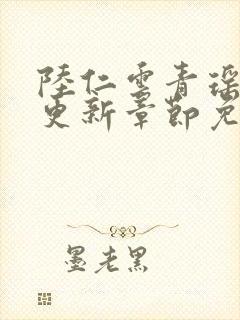 陸仁雲青瑶
更新章節免
墨老黑